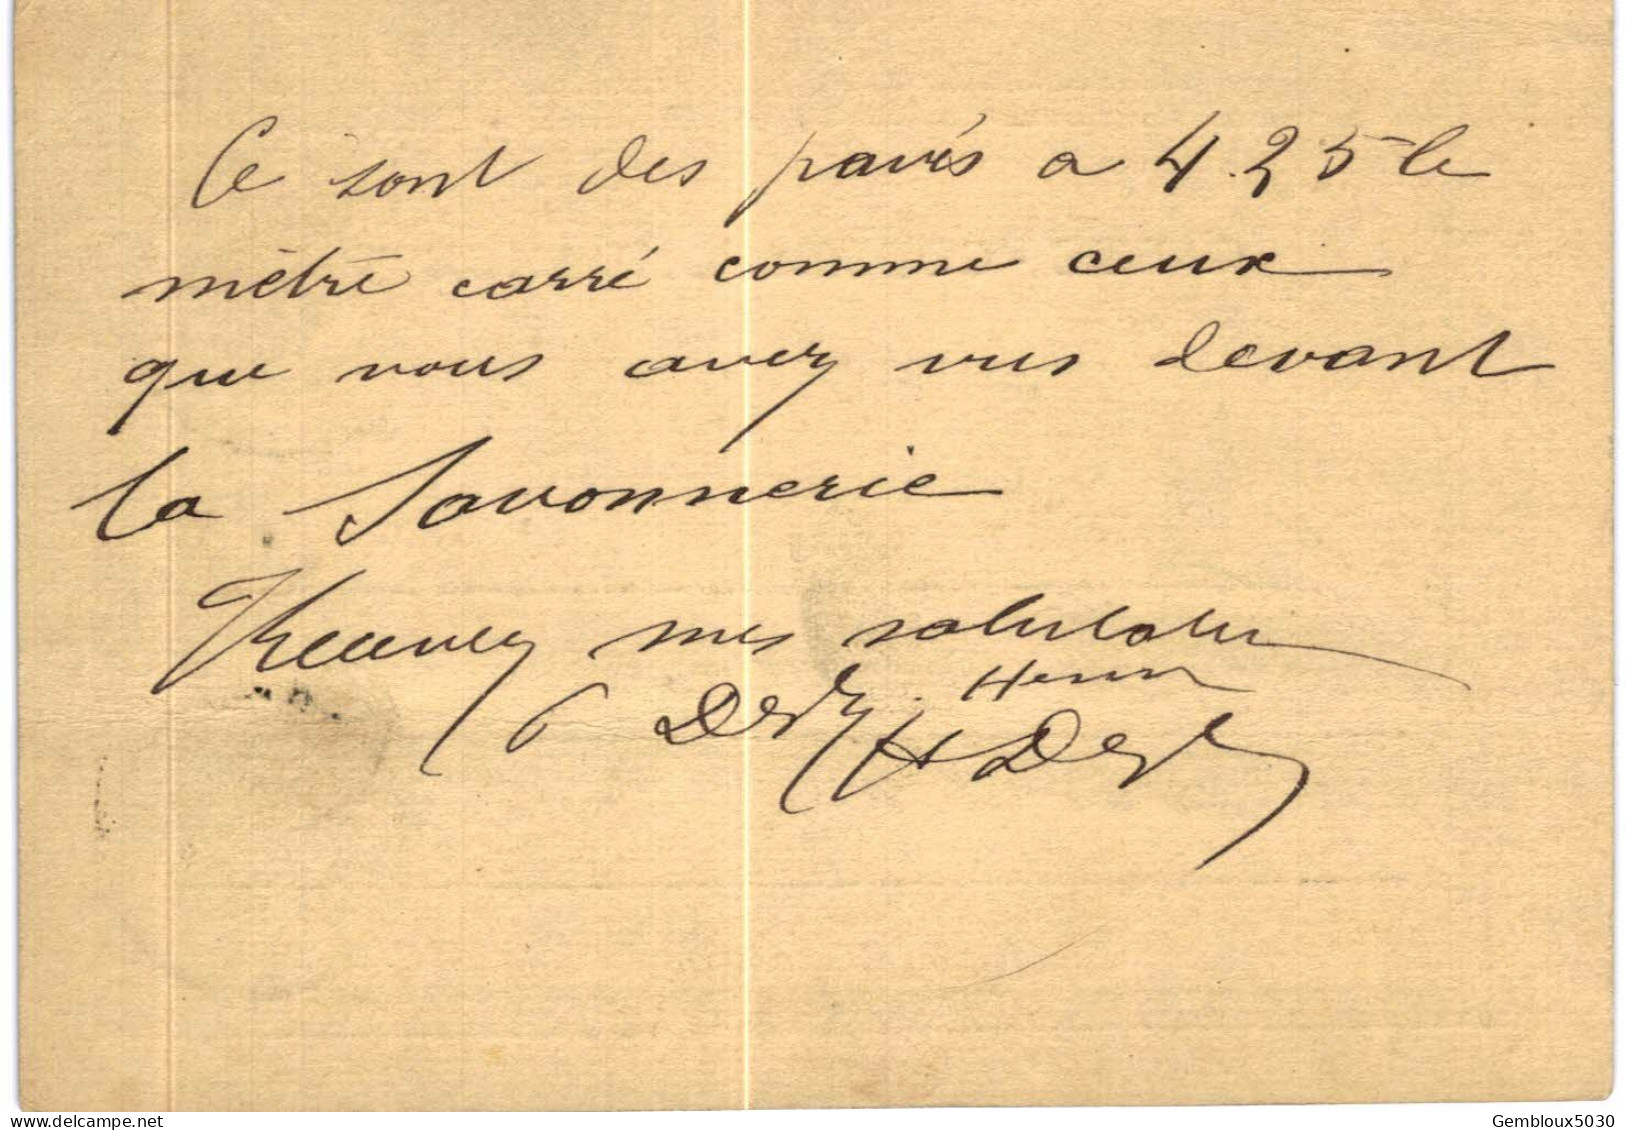 Ce sont des pavés a 4.25 le
mètre carré comme ceux
que vous avez vus devant
la Savonnerie
Recevez mes salutations
Henri
Gembloux5030